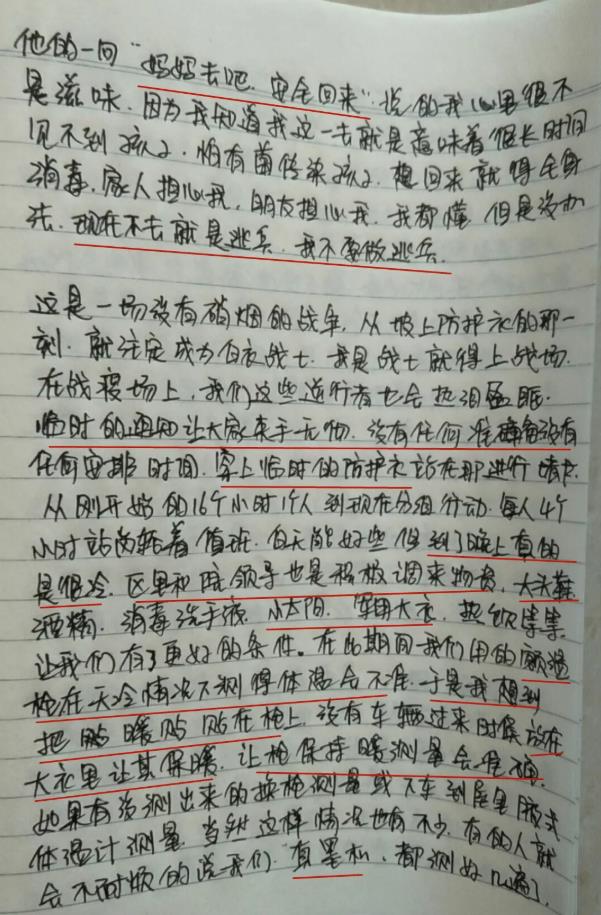 他的一句“妈妈去吧.安全回来”说的我心里很不
是滋味.因为我知道我这一去就是意味着很长时间
见不到孩子.怕有菌传染孩子.想回来就得全身
消毒.家人担心我.朋友担心我.我都懂 但是没办
法.现在不去就是逃兵.我不要做逃兵.
这是一场没有硝烟的战争.从披上防护衣的那一
刻.就注定成为白衣战士.我是战士就得上战场.
在战疫场上.我们这些逆行者也会热泪盈眶.
临时的通知让大家束手无物.没有任何准确备没有
任何安排时间.穿上临时的防护衣站在那进行
从刚开始的16个小时1个人到现在分组行动.每人4个
小时站岗轮着值班.白天能好些但到了晚上真的
是很冷.区里和院领导也是积极调来物资.大头鞋
酒精.消毒洗手液.小太阳.军用大衣.热饮等等
让我们有了更好的条件。在此期间我们用的额温
枪在天冷情况下测得体温会不准.于是我想到
把 暖贴贴在枪上.没有车辆过来时候放在
大衣里让其保暖.让枪保持暖测量会准确.
如果有没测出来的换枪测量或下车到屋里腋式
体温计测量.当然这样情况也有不少.有的人就
会不耐烦的说我们.有 .都测好几遍了